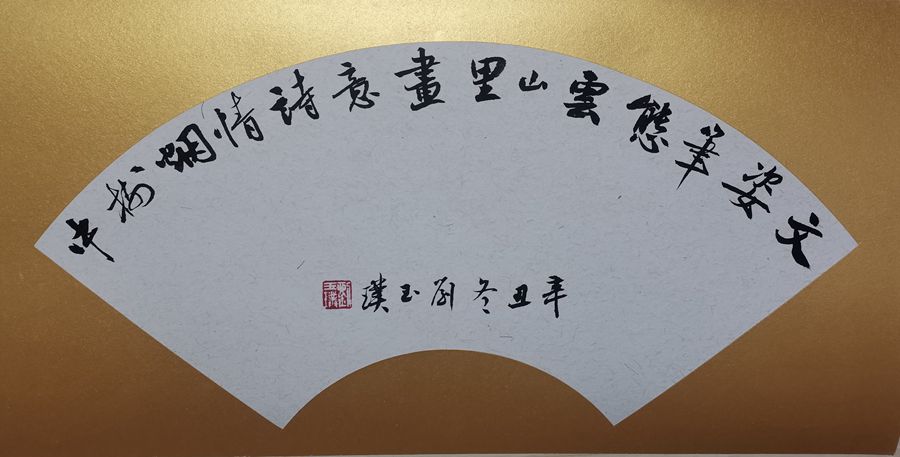 文姿筆態雲山里畫意詩情烟樹中
辛丑冬劉玉璞